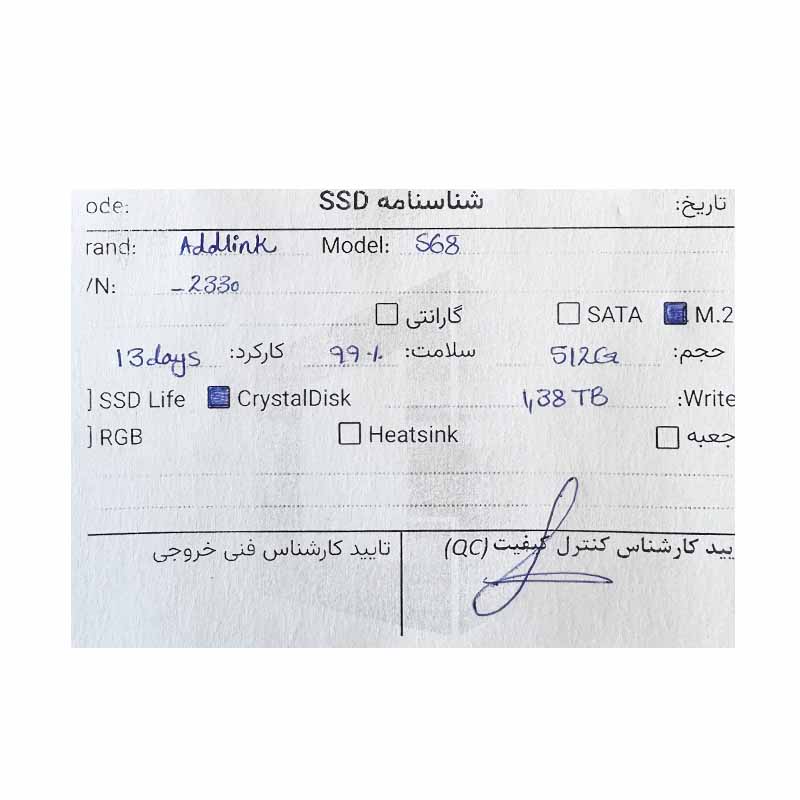 ode: شناسنامه SSD تاریخ:
rand: Addlink Model: S68
/N: -2330
گارانتی SATA M.2
حجم: 512G سلامت: 99% کارکرد: 13days
SSD Life CrystalDisk 1,38 TB :Write
RGB Heatsink جعبه
یید کارشناس کنترل کیفیت (QC) تایید کارشناس فنی خروجی